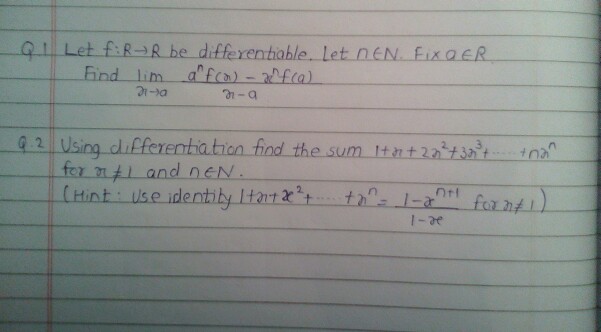 Q1 Let f:R→R be differentiable. Let n∈N. Fix a∈R.
Find lim x→a (aⁿf(x) - xⁿf(a))/(x-a)
Q.2 Using differentiation find the sum 1+x+2x²+3x³+......+nxⁿ
for x≠1 and n∈N.
(Hint: Use identity 1+x+x²+......+xⁿ = (1-xⁿ⁺¹)/(1-x) for x≠1)